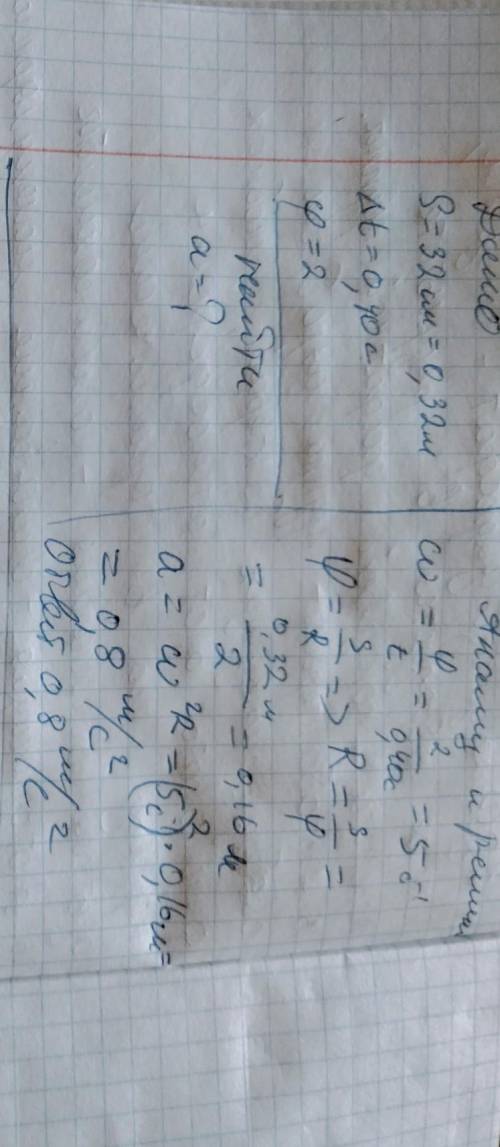 Дано
S = 32 см = 0,32 м
Δt = 0,40 с
φ = 2
найти
a = ?
Анализ и решен
ω = φ/t = 2/0,40с = 5 с⁻¹
φ = S/R => R = S/φ =
= 0,32 м/2 = 0,16 м
a = ω²R = (5с⁻)²·0,16м =
= 0,8 м/с²
Ответ 0,8 м/с²